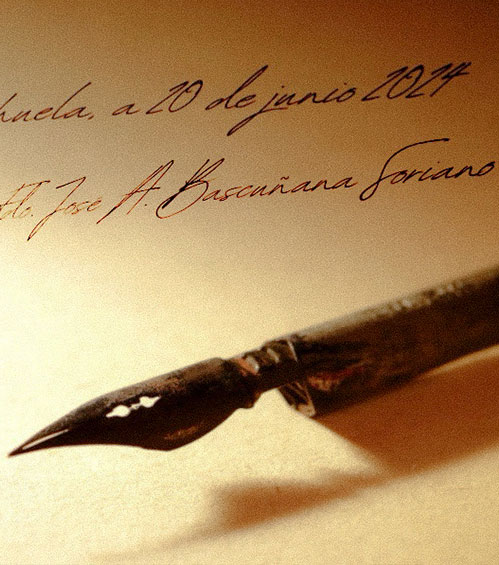 huela, a 20 de junio 2024
Fdo. Jose A. Bascuñana Soriano